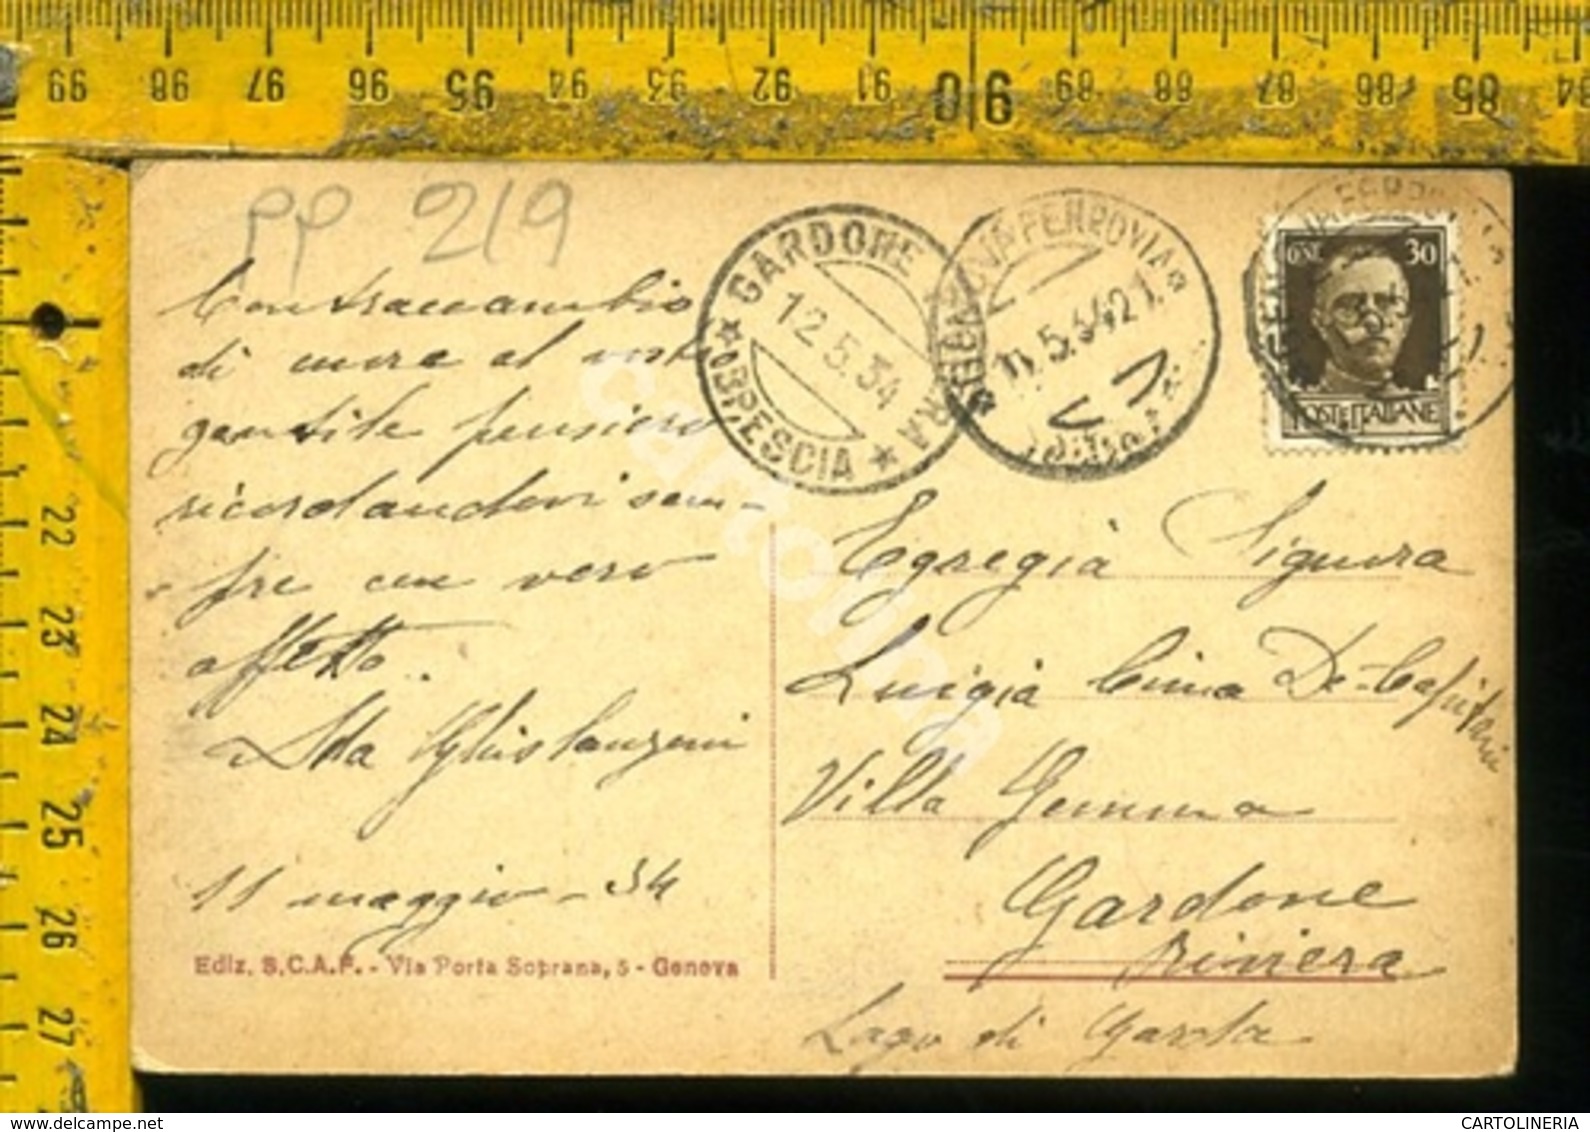 99 98 97 96 95 94 93 92 91 90 89 88 87 86 85 84
22
23
24
25
26
27
PP 219
GARDONE RIVIERA
12.5.34
BRESCIA
FERROVIA
30
POSTE ITALIANE
Contraccambio
di cuore al vostro
gentile pensiero
ricordandovi sem-
pre con vero
affetto.
Ida Ghislanzoni
11 maggio - 34
Ediz. S.C.A.F. - Via Porta Soprana, 5 - Genova
Egregia Signora
Luigia Cima De-
Villa Gemma
Gardone
Riviera
Lago di Garda
cartolina
CARTOLINERIA